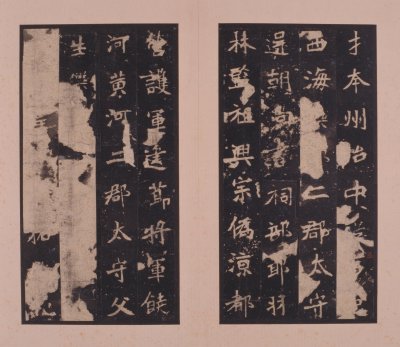 才本州治中
西海二郡太守
還朝尚書祠部郎羽
林監祖興宗偽涼都
營護軍建節將軍饒
河黃河二郡太守父
生